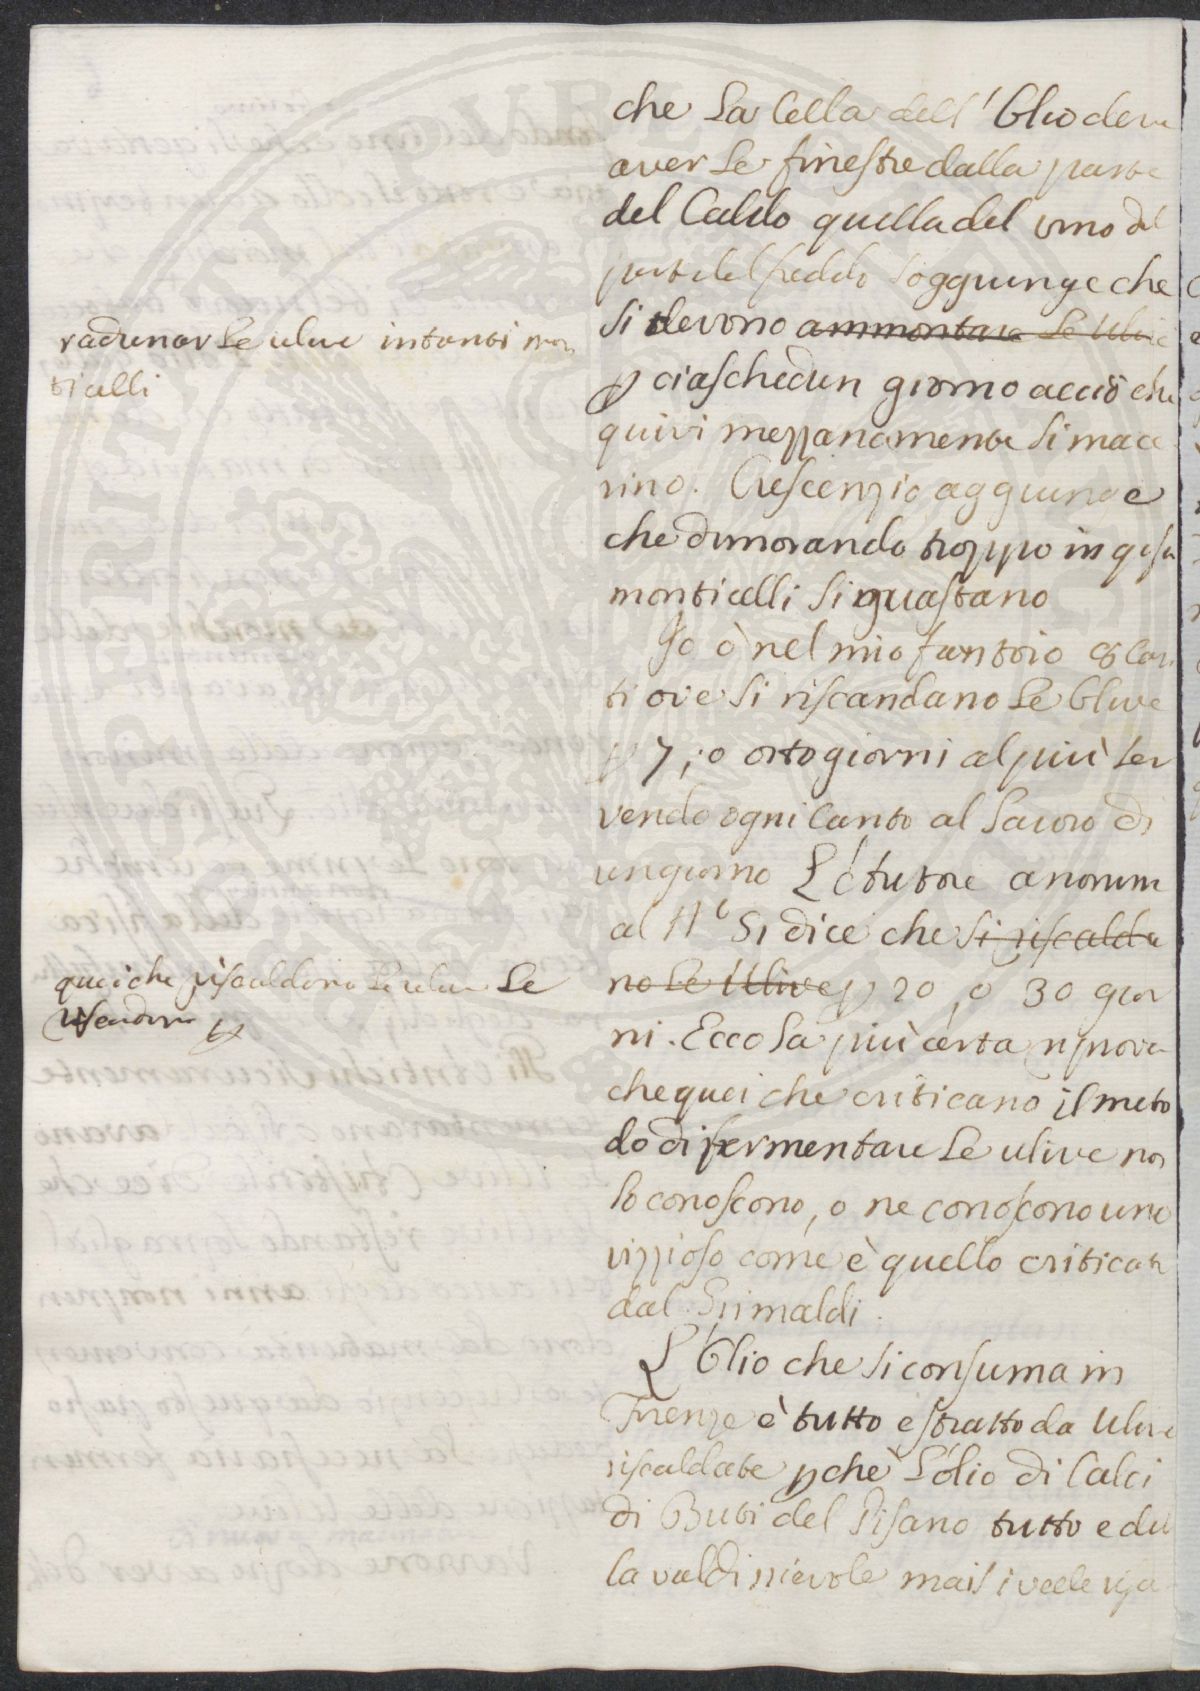 che la Cella dell' Olio deve
aver le finestre dalla parte
del Caldo quella del vino dal
part del freddo soggiunge che
si devono ammontare le Ulive
radunar le ulive in tanti mon
ticelli
p ciaschedun giorno acciò che
quivi mezzanamente si mace
rino. Crescenzio aggiunge
che dimorando troppo in qsti
monticelli si guastano
Io ò nel mio fantoio 8 Can
ti ove si riscandano le Olive
p 7, o otto giorni al più ser
vendo ogni Canto al lavoro di
un giorno L'Autore anonim
al si dice che si riscalda
no le Ulive p 20, o 30 gior
quei che riscaldono le ulive le
p
ni. Ecco la più certa riprova
che quei che criticano il meto
do di fermentare le ulive non
lo conoscono, o ne conoscono uno
vizzioso come è quello criticato
dal Grimaldi.
L'Olio che si consuma in
Firenze è tutto estratto da Ulive
riscaldate pchè l'olio di Calci
di Buti del Pisano tutto e del
la valdinievole mai si vede